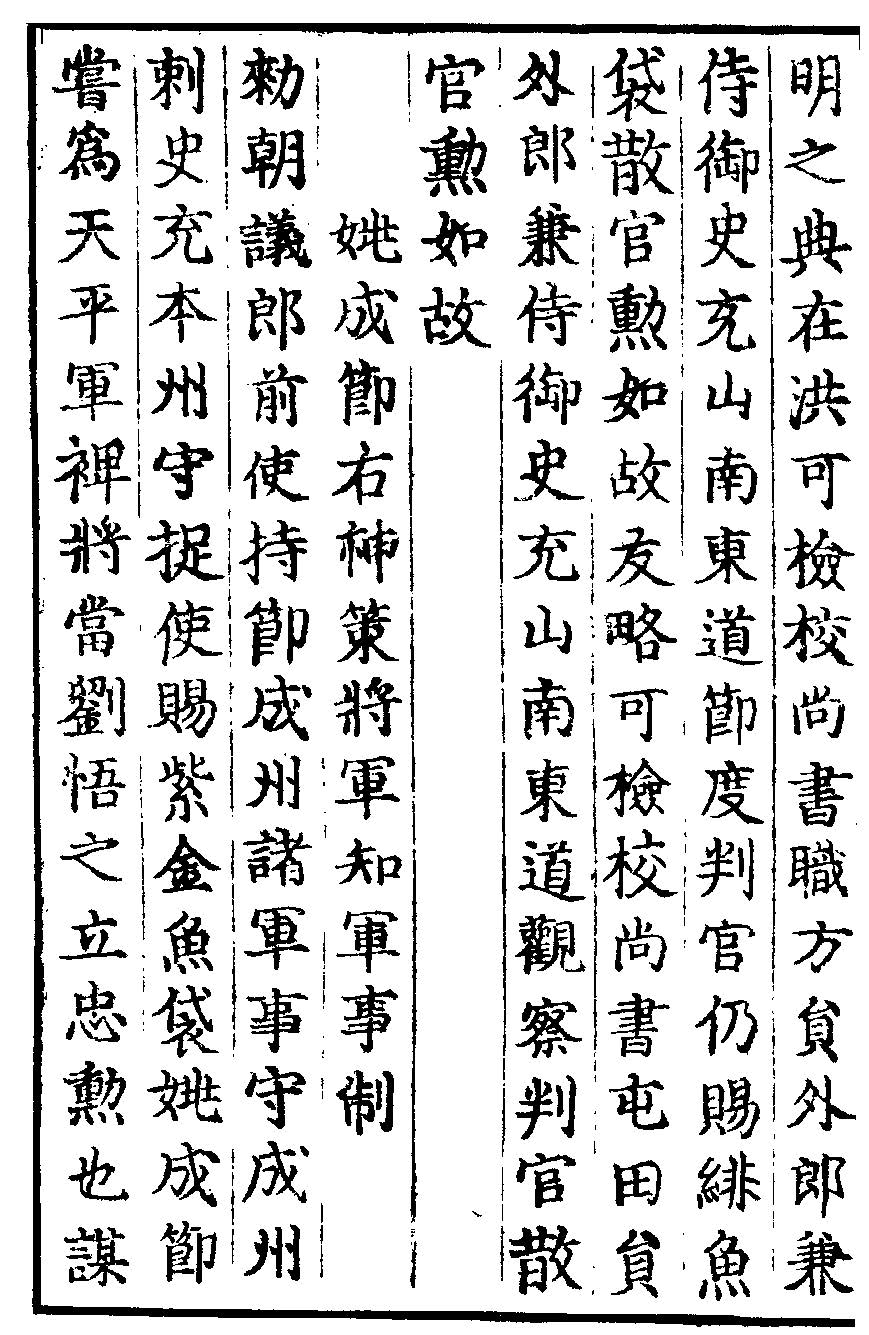 明之典在洪可檢校尚書職方貟外郎兼
侍御史充山南東道節度判官仍賜緋魚
袋散官勲如故友略可檢校尚書屯田貟
外郎兼侍御史充山南東道觀察判官散
官勲如故
姚成節右神策將軍知軍事制
勑朝議郎前使持節成州諸軍事守成州
刺史充本州守捉使賜紫金魚袋姚成節
嘗爲天平軍裨將當劉悟之立忠勲也謀